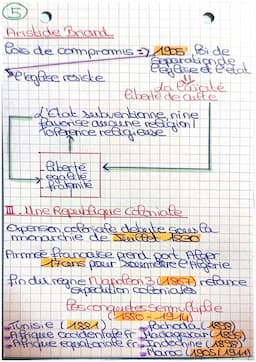 5
Aristide Briand
Lois de compromis => 1905 loi de
séparation de
l'église et l'état
l'église résiste
La laïcité
liberté de culte
L'Etat subventionne, ni ne
favorise aucune religion
tolérance religieuse
liberté
égalité
fraternité
III. Une République Coloniale
Expension coloniale débute sous la
monarchie de Juillet 1830
Armée francaise prend port Alger
17 ans pour soumettre l'Algérie
fin du règne Napoléon 3 relance
expédition coloniales
Les conquêtes multiplie
1880 - 1914
Tunisie (1881)
Afrique occidentale fr
Afrique équatoriale fr
Madagascar
Indochine
Maroc